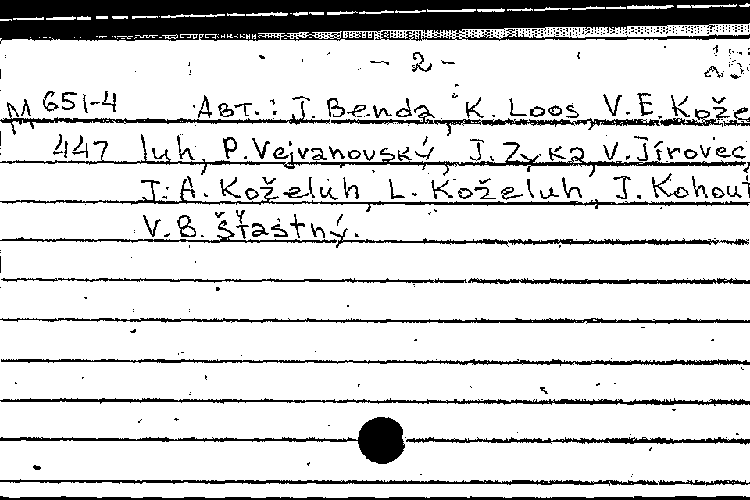 - 2 -
М 651-4 Авт.: J. Benda, K. Loos, V. E. Kože
447 luh, P. Vejvanovský, J. Zyka, V. Jírovec,
J. A. Koželuh, L. Koželuh, J. Kohout
V. B. Šťastný.